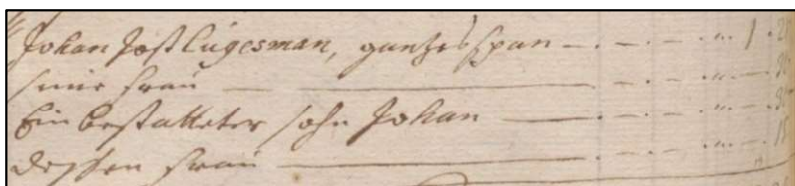 Johan Jost Lügesman, gantzes span — . — . — . " . 1 . 2
seine frau — . — . — . " . 3
Ein bestatteter sohn Johan — . — . — . " . 3
dessen frau — . — . — . " . 15